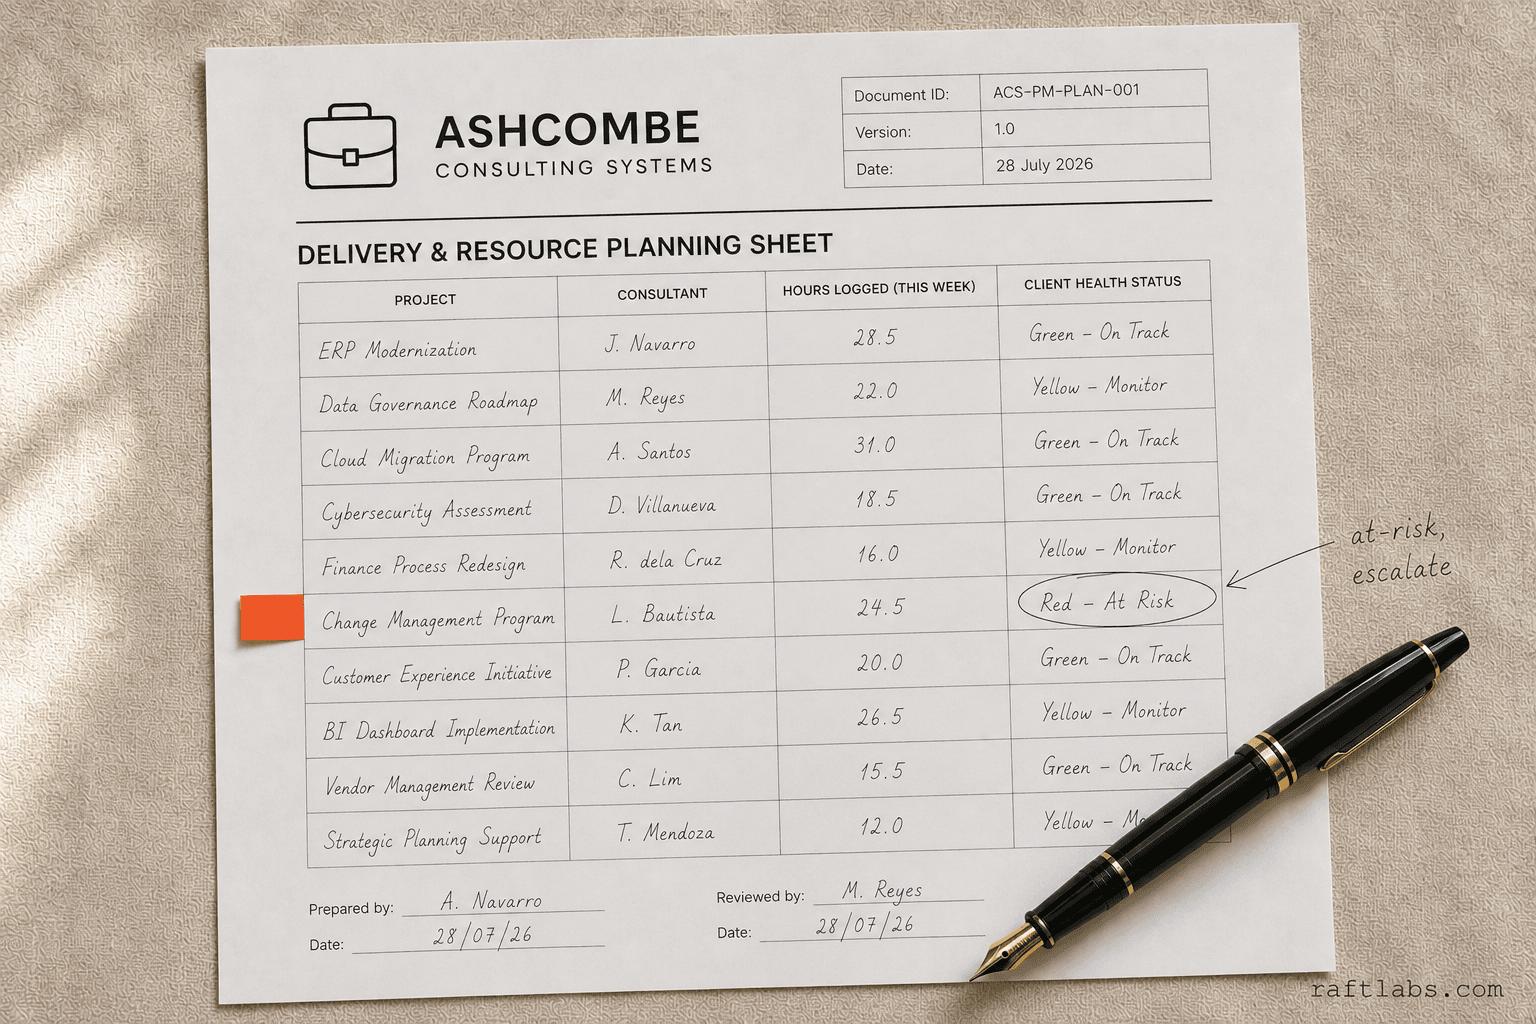 ASHCOMBE
CONSULTING SYSTEMS
Document ID: ACS-PM-PLAN-001
Version: 1.0
Date: 28 July 2026
DELIVERY & RESOURCE PLANNING SHEET
PROJECT CONSULTANT HOURS LOGGED (THIS WEEK) CLIENT HEALTH STATUS
ERP Modernization J. Navarro 28.5 Green – On Track
Data Governance Roadmap M. Reyes 22.0 Yellow – Monitor
Cloud Migration Program A. Santos 31.0 Green – On Track
Cybersecurity Assessment D. Villanueva 18.5 Green – On Track
Finance Process Redesign R. dela Cruz 16.0 Yellow – Monitor
Change Management Program L. Bautista 24.5 Red – At Risk
at-risk,
escalate
Customer Experience Initiative P. Garcia 20.0 Green – On Track
BI Dashboard Implementation K. Tan 26.5 Yellow – Monitor
Vendor Management Review C. Lim 15.5 Green – On Track
Strategic Planning Support T. Mendoza 12.0 Yellow –
Prepared by: A. Navarro Reviewed by: M. Reyes
Date: 28/07/26 Date: 28/07/26
raftlabs.com